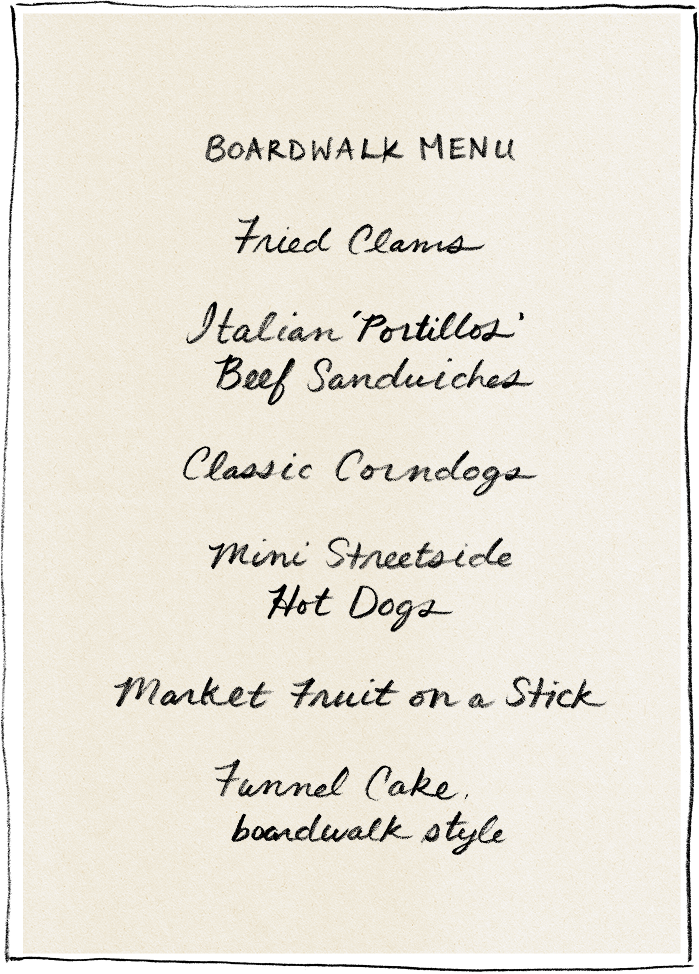 BOARDWALK MENU
Fried Clams
Italian 'Portillos'
Beef Sandwiches
Classic Corndogs
Mini Streetside
Hot Dogs
Market Fruit on a Stick
Funnel Cake,
boardwalk style